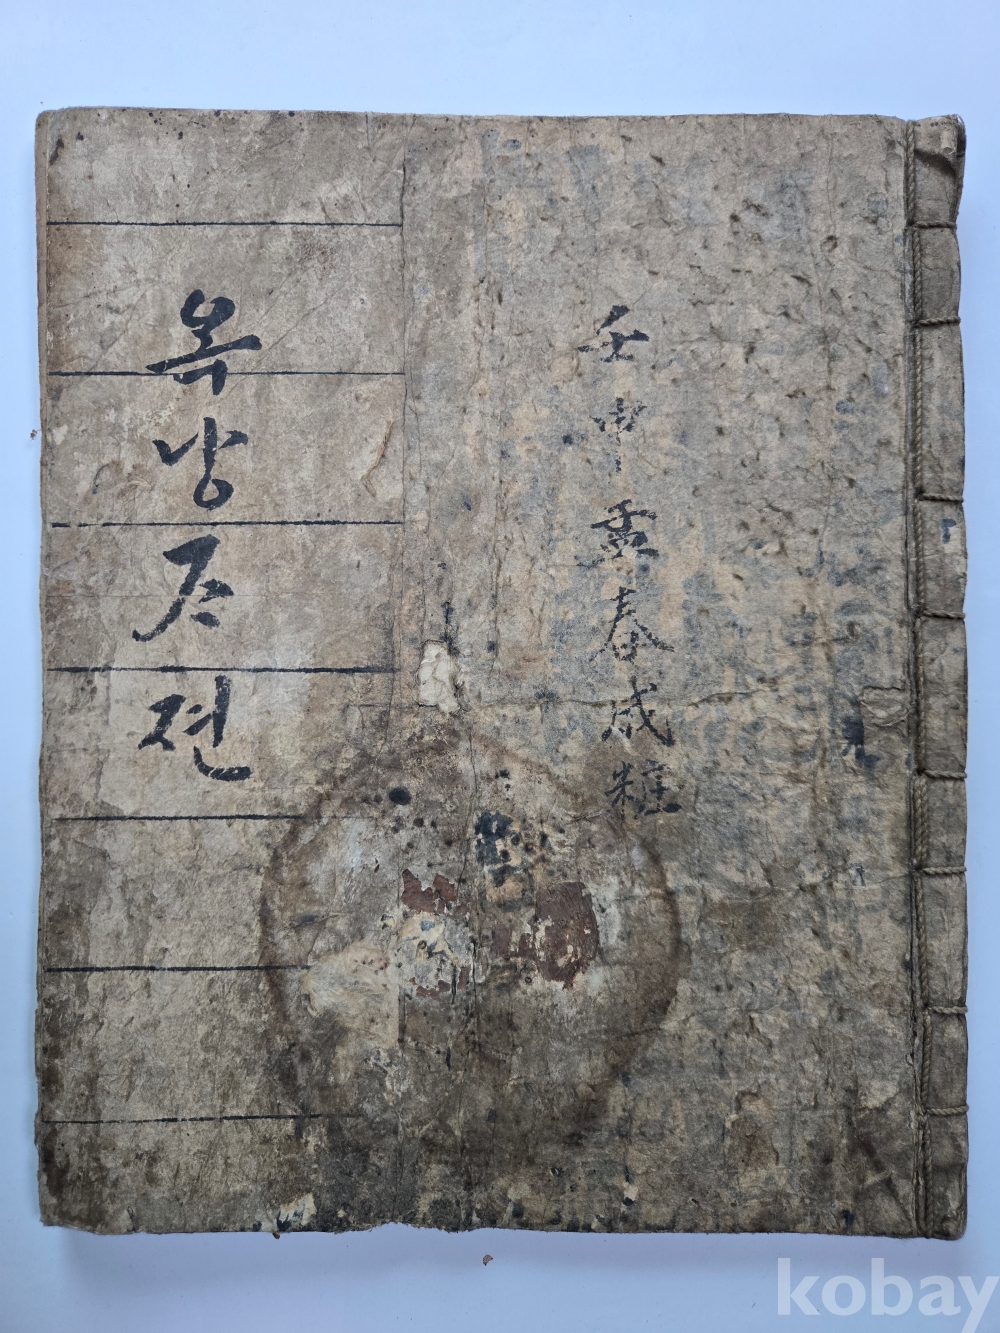 壬申孟春成粧
옥낭ᄌᆞ젼
kobay